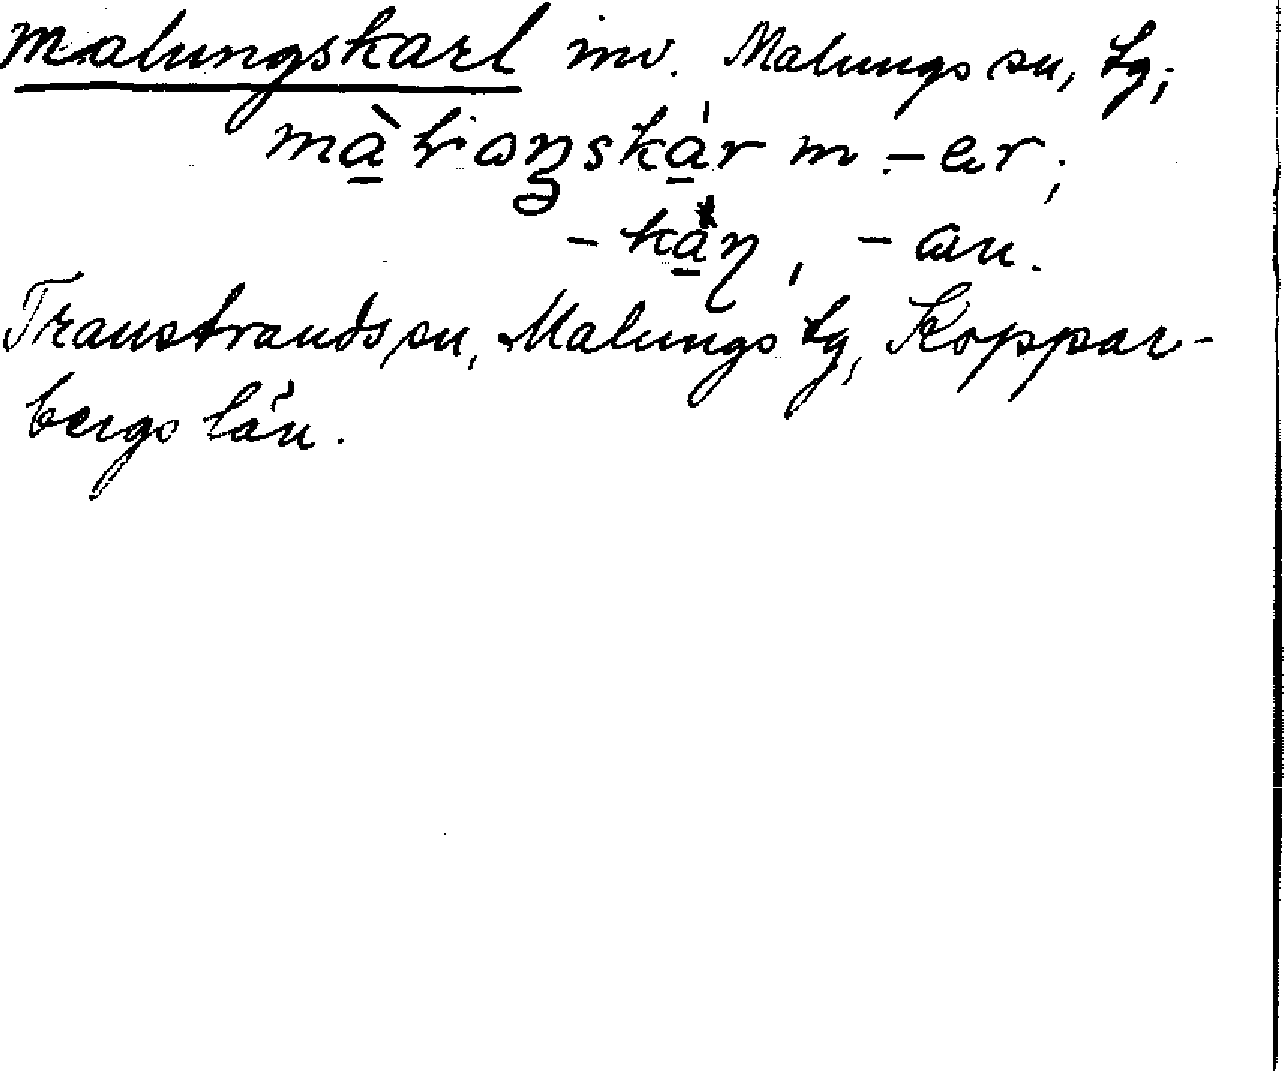 Malungskarl inv. Malungs sn, tg;
m -er;
-an.
Transtrands sn, Malungs tg, Koppar-
bergs län.